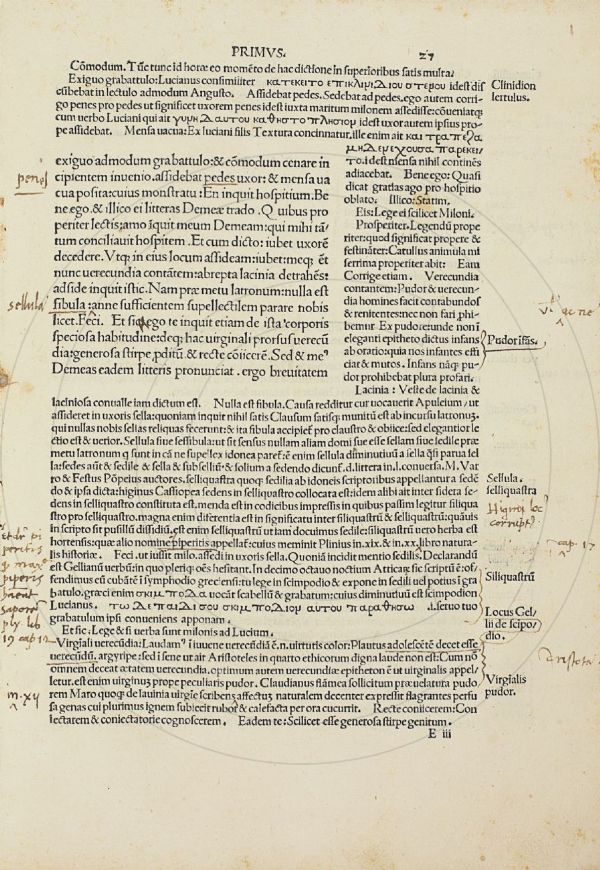 PRIMVS.
27
Cõmodum. Tũc tunc id horæ eo momẽto de hac dictione in superioribus satis multa.
Exiguo grabattulo: Lucianus consimiliter κατεκειτο επικλιμιΔιου στερου idest dis
cũbebat in lectulo admodum Angusto. Assidebat pedes. Sedebat ad pedes. ego autem corri
go penes pro pedes ut significet uxorem penes idest iuxta maritum milonem assedisse: cõueniatq;
cum uerbo Luciani qui ait γυμη Δαυτου καθηστο πλησιομ idest uxor deinde ipsius pro
pe assidebat. Mensa uacua: Ex luciani filis Textura concinnatur. ille enim ait και τραπεζα
Clinidion
lectulus.
exiguo admodum grabattulo: & cõmodum cenare in
cipientem inuenio. assidebat pedes uxor: & mensa ua
cua posita: cuius monstratu: En inquit hospitium. Be
ne ego: & illico ei litteras Demeæ trado. Quibus pro
periter lectis: amo īquit meum Demeam: qui mihi tã
tum conciliauit hospitem. Et cum dicto: iubet uxorẽ
decedere. Vtq; in eius locum assideam: iubet: meq; ẽt
nunc uerecundia contãtem: abrepta lacinia detrahẽs:
adside inquit istic. Nam præ metu latronum: nulla est
sibula: anne sufficientem supellectilem parare nobis
licet. Feci. Et sic ego te inquit etiam de ista corporis
speciosa habitudine: deq; hac uirginali prorsus uerecũ
dia: generosa stirpe pditũ: & recte cõiicerẽ. Sed & me⁹
Demeas eadem litteris pronunciat. ergo breuitatem
μηΔεμ εχουσα παρεκει
το. idest nsensa nihil continẽs
adiacebat. Bene ego: Quasi
dicat gratias ago pro hospitio
oblato. Illico: Statim.
Eis: Lege ei scilicet Miloni.
Prosperiter. Legendũ prope
riter: quod significat propere &
festinãter: Catullus animula mi
serrima properiter abit: Eam
Corrige etiam. Verecundia
contantem: Pudor & uerecun
dia homines facit contabundos
& renitentes: nec non fari .phi
bemur. Ex pudore: unde non ī
eleganti epitheto dictus infans
ab oratio: quia nos infantes effi
ciat & mutos. Infans nāq; pu
dor prohibebat plura profari.
Lacinia: Veste de lacinia &
Pudor ĩfãs.
laciniosa conualle iam dictum est. Nulla est sibula. Causa redditur cur uocauerit Apuleium, ut
assideret in uxoris sella: quoniam inquit nihil satis Clausum satisq; munitũ est ab incursu latronũ:
qui nullas nobis sellas reliquas fecerunt: & ita fibula accipiet pro claustro & obiice: sed elegantior le
ctio est & uerior. Sellula siue sessibula: ut sit sensus nullam aliam domi sue esse sellam siue sedile præ
metu latronum q sunt in cã ne supellex idonea paref: ẽ enim sellula diminutiuũ a sella qsi parua sel
la: sedes aũt & sedile & sella & subselliũ & solium a sedendo dicunf. d. littera in .l. conuersa. M. Var
ro & Festus Põpeius auctores. selliquastra quoq; sedilia ab idoneis scriptoribus appellantur a sedẽ
do & ipsa dicta: higinus Cassiopea sedens in selliquastro collocata est: idem alibi ait inter sidera se
dens in selliquastro constituta est. menda est in codicibus impressis in quibus passim legitur siliqua
stro pro selliquastro. magna enim diferentia est in significatu inter siliquastrũ & selliquastrũ: quãuis
in scripto sit pusillũ dissidiũ. est enim selliquastrũ ut iam docuimus sedile: siliquastrũ uero herba est
hortensis: quæ alio nomine piperitis appellaf: cuius meminit Plinius in .xix. & in .xx. libro natura
lis historiæ. Feci. ut iussit milo. assedi in uxoris sella. Quoniã incidit mentio sedilis. Declarandũ
est Gellianũ uerbũ: in quo pleriq; oẽs hesitant. In decimo octauo noctium Atticaꝝ sic scriptũ ẽ: of
fendimus eũ cubãtẽ ĩ symphodio greciensi: tu lege in scimpodio & expone in sedili uel potius ĩ gra
batulo. græci enim σκιμποΔα uocãt scabellũ & grabatum: cuius diminutiuũ est scimpodion
Lucianus. τω ΔεπαιΔι σου σκιμποΔιομ αυτου παραθησω .i. seruo tuo
grabatulum ipsi conueniens apponam.
Et sic: Lege & si uerba sunt milonis ad Lucium.
Virgĩali uerecũdia: Laudaṁ ĩ iuuene uerecũdiã ẽ .n. uirtutis color: Plautus adolescẽtẽ decet esse
uerecũdũ. argyripe: sed i sene ut air Aristoteles in quarto ethicorum digna laude non est: Cum nõ
omnem deceat ætatem uerecundia. optimum autem uerecundiæ epitheton ẽ ut uirginalis appel/
letur. est enim uirginum prope peculiaris pudor. Claudianus flãmea sollicitum præuelatura pudo
rem Maro quoq; de lauinia uirgĩe scribens affectus naturalem decenter expressit flagrantes perfu
sa genas cui plurimus ignem subiecit rubor & calefacta per ora cucurrit. Recte coniicerem: Con
lectarem & coniectatorie cognoscerem. Eadem te: Scilicet esse generosa stirpe genitum.
E iii
Sellula.
selliquastra
Siliquastrũ
Locus Gel
lii de scipo/
dio.
Virgĩalis
pudor.
penes
sellula
cap 17